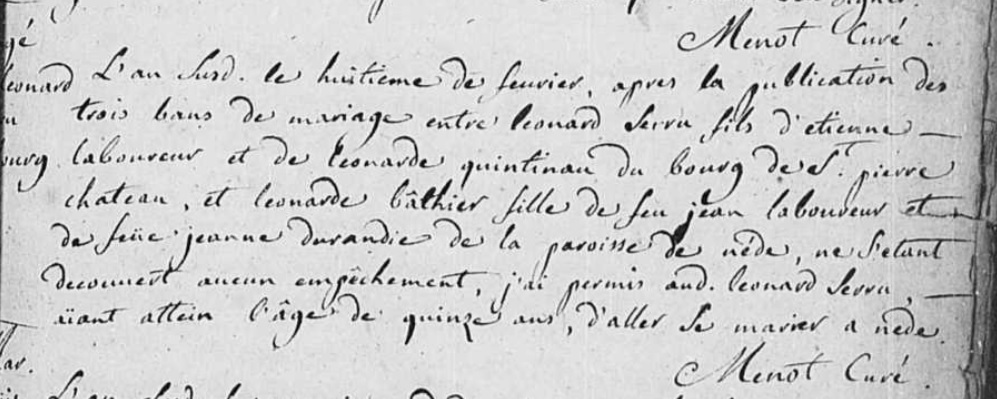 Menot Curé.
gé
leonard L'an susd. le huitieme de feuvrier, apres la publication des
trois bans de mariage entre leonard Serru fils d'etienne
ourg laboureur et de leonarde quintinau du bourg de St. pierre
chateau, et leonarde bâthier fille de feu jean laboureur et
de feüe jeanne durandie de la paroisse de nède, ne s'etant
decouvert aucun empêchement, j'ai permis aud. leonard Serru,
aïant attein l'âge de quinze ans, d'aller se marier a nede.
Menot Curé.
lar.
L'an susd.